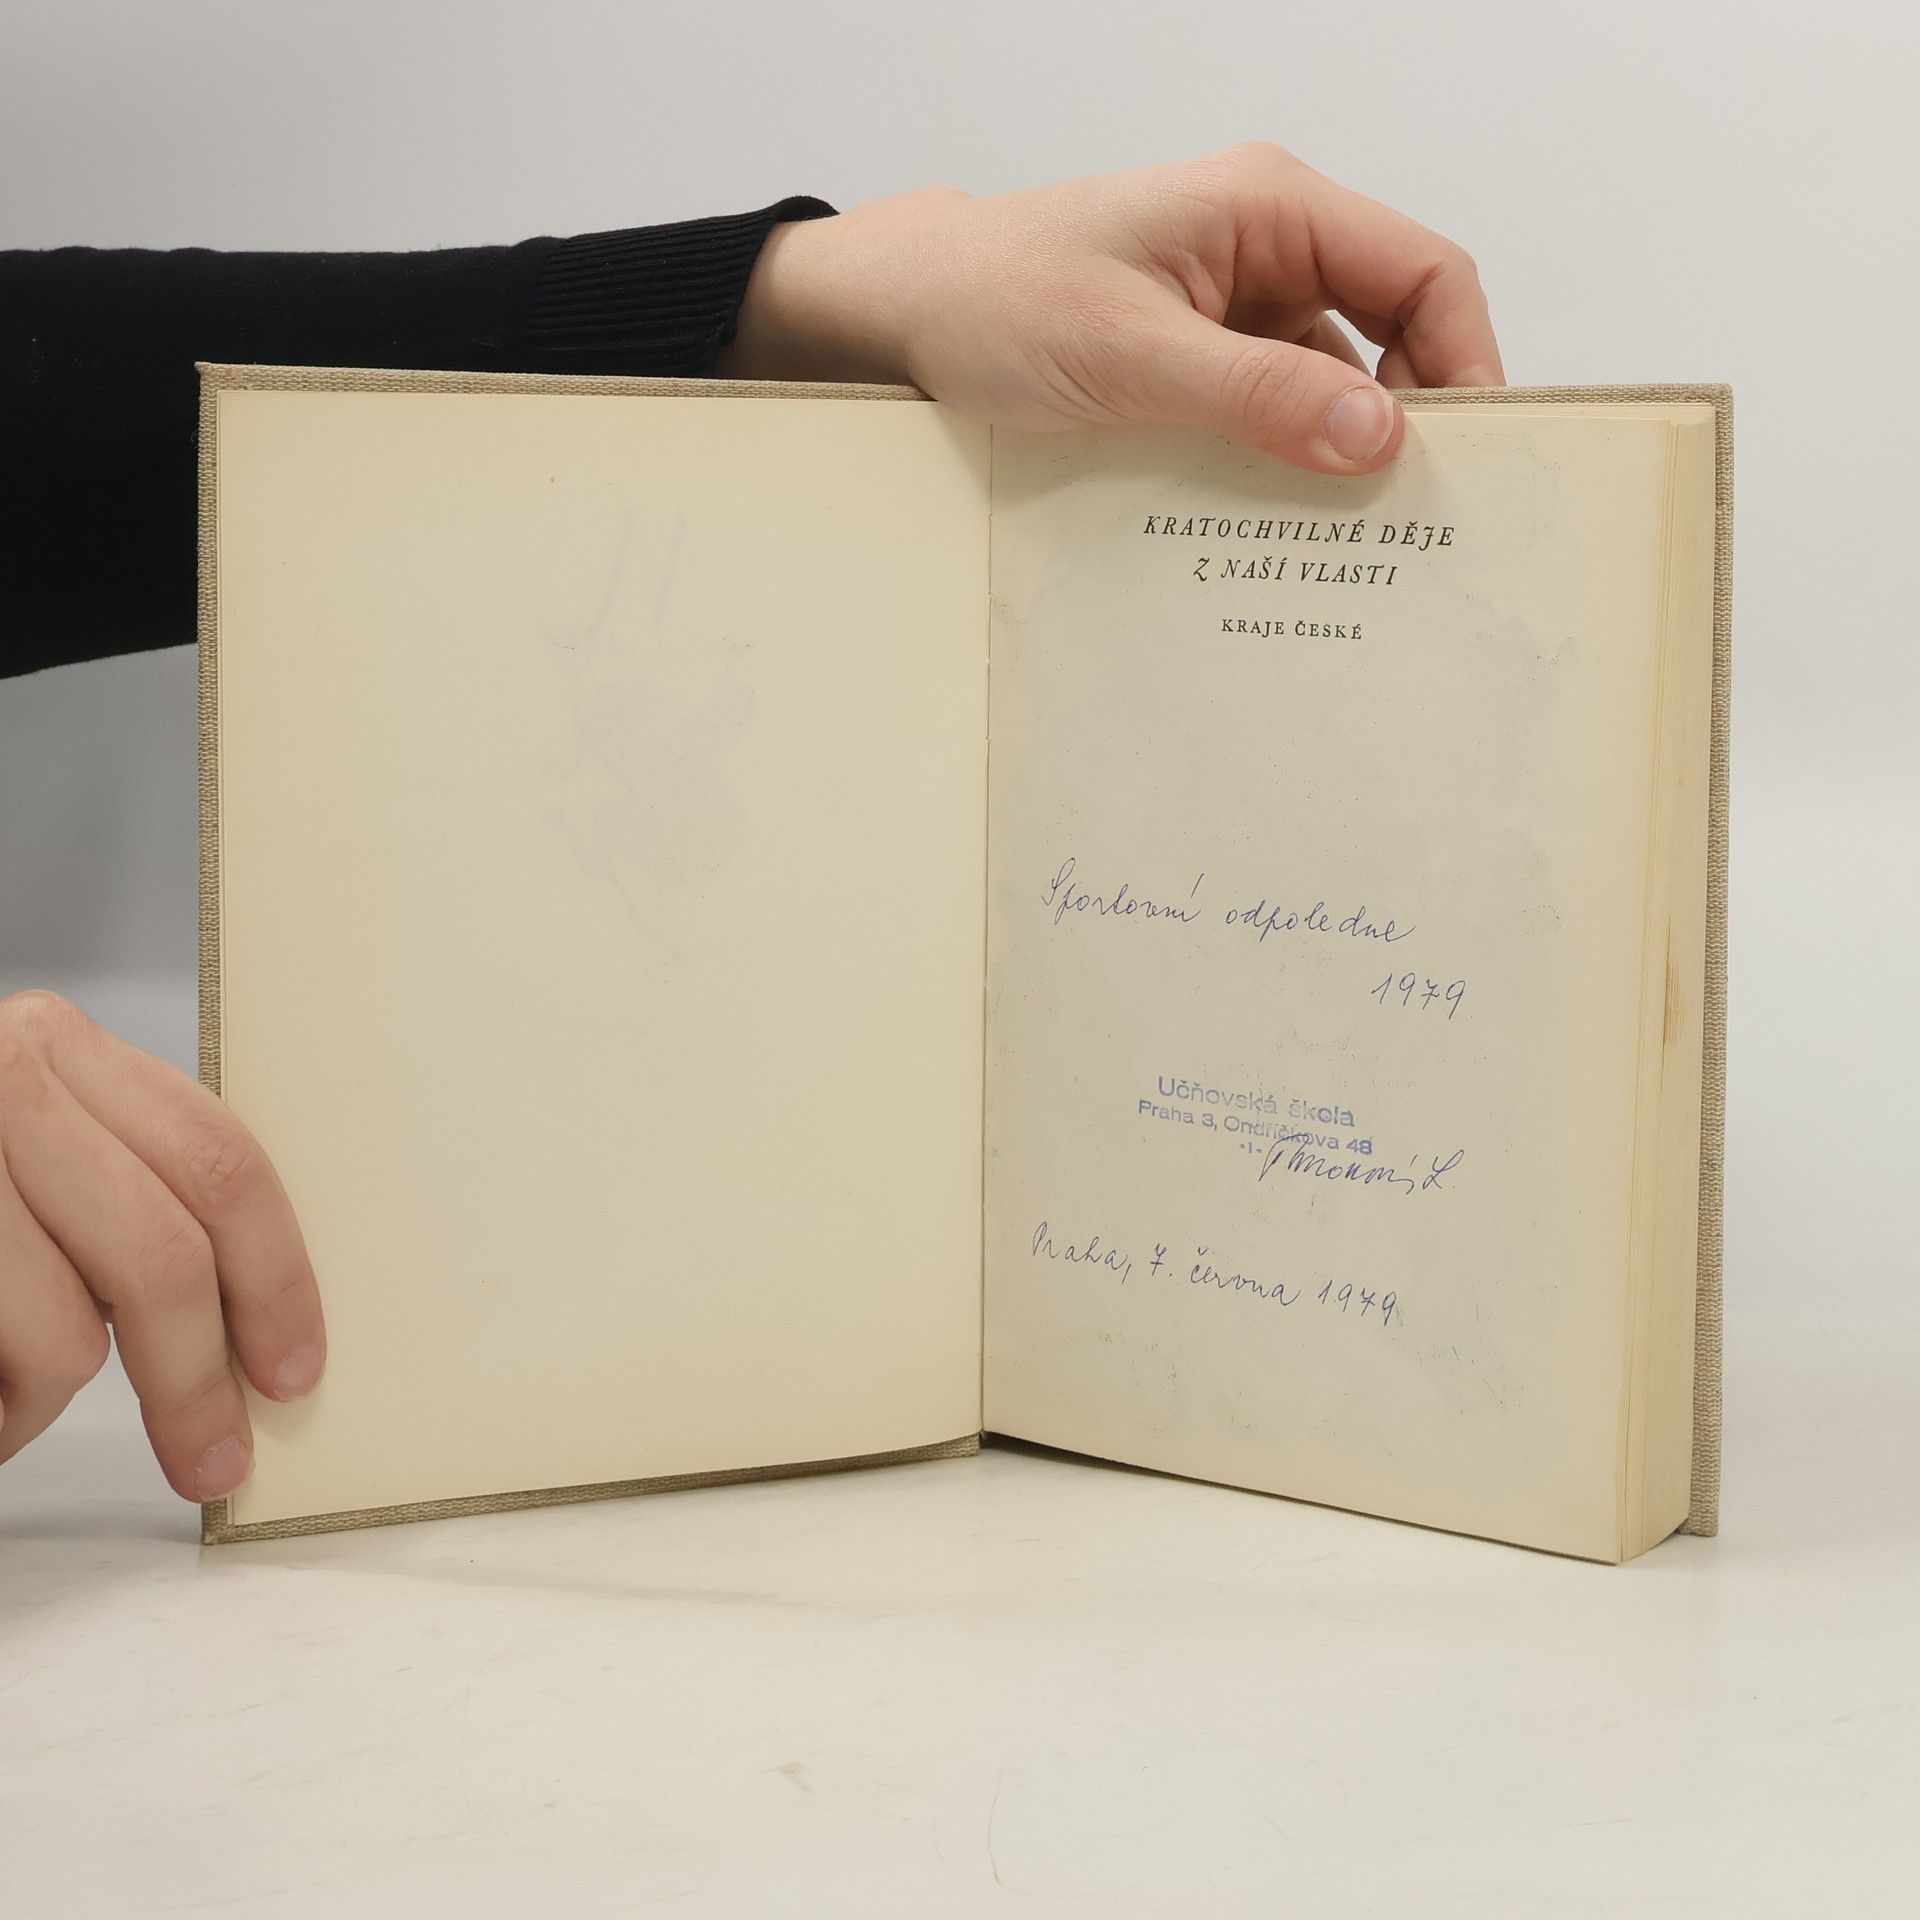 KRATOCHVILNÉ DĚJE
Z NAŠÍ VLASTI
KRAJE ČESKÉ
Sportovní odpoledne
1979
Učňovská škola
Praha 3, Ondříčkova 48
-1-
L.
Praha, 7. června 1979